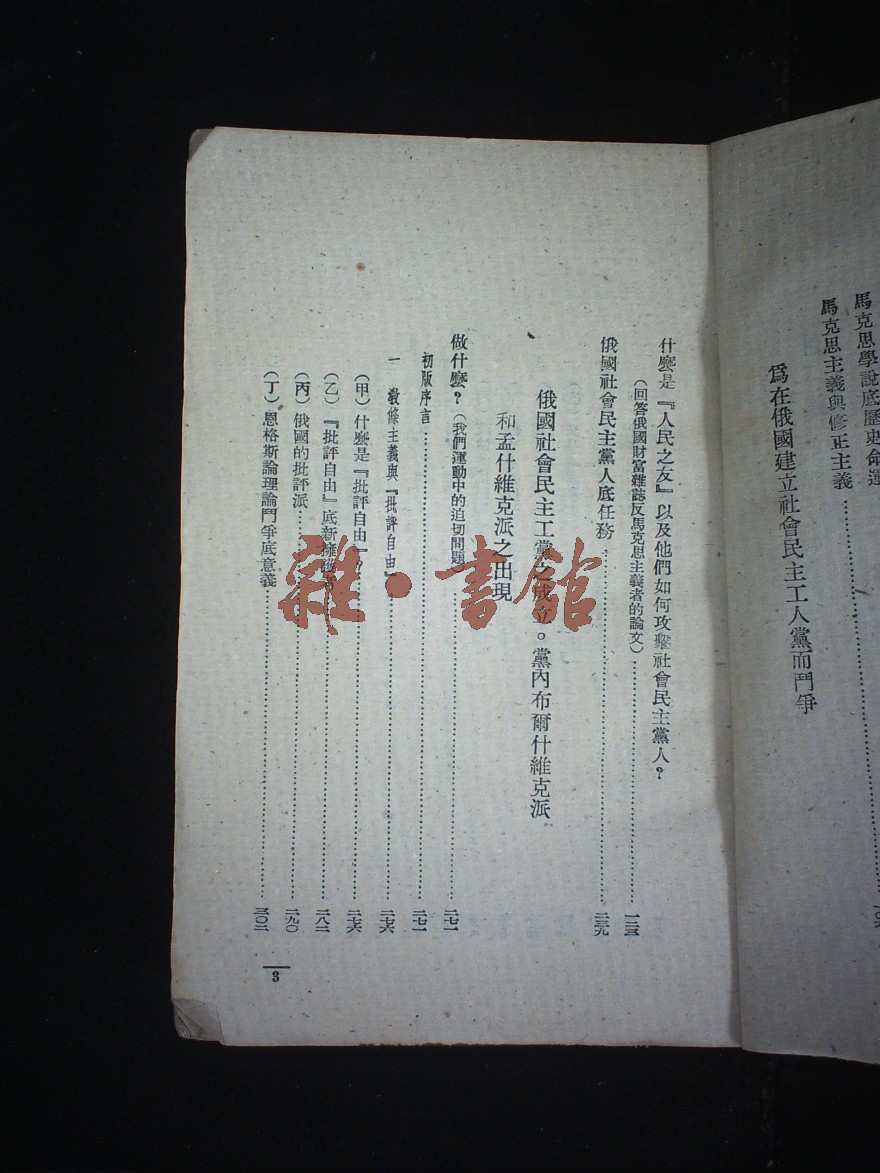 馬克思學說底歷史命運
馬克思主義與修正主義
爲在俄國建立社會民主工人黨而鬥爭
什麼是『人民之友』以及他們如何攻擊社會民主黨人?
(回答俄國財富雜誌反馬克思主義者的論文) 一二三
俄國社會民主黨人底任務 二三九
俄國社會民主工黨之成立。黨內布爾什維克派
和孟什維克派之出現
做什麼?(我們運動中的迫切問題) 二七一
初版序言 二七一
一 敎條主義與『批評自由』 二七六
(甲)什麼是『批評自由』? 二七六
(乙)『批評自由』底新擁護者 二八二
(丙)俄國的批評派 二九〇
(丁)恩格斯論理論鬥爭底意義 三〇二
3
雜·書館